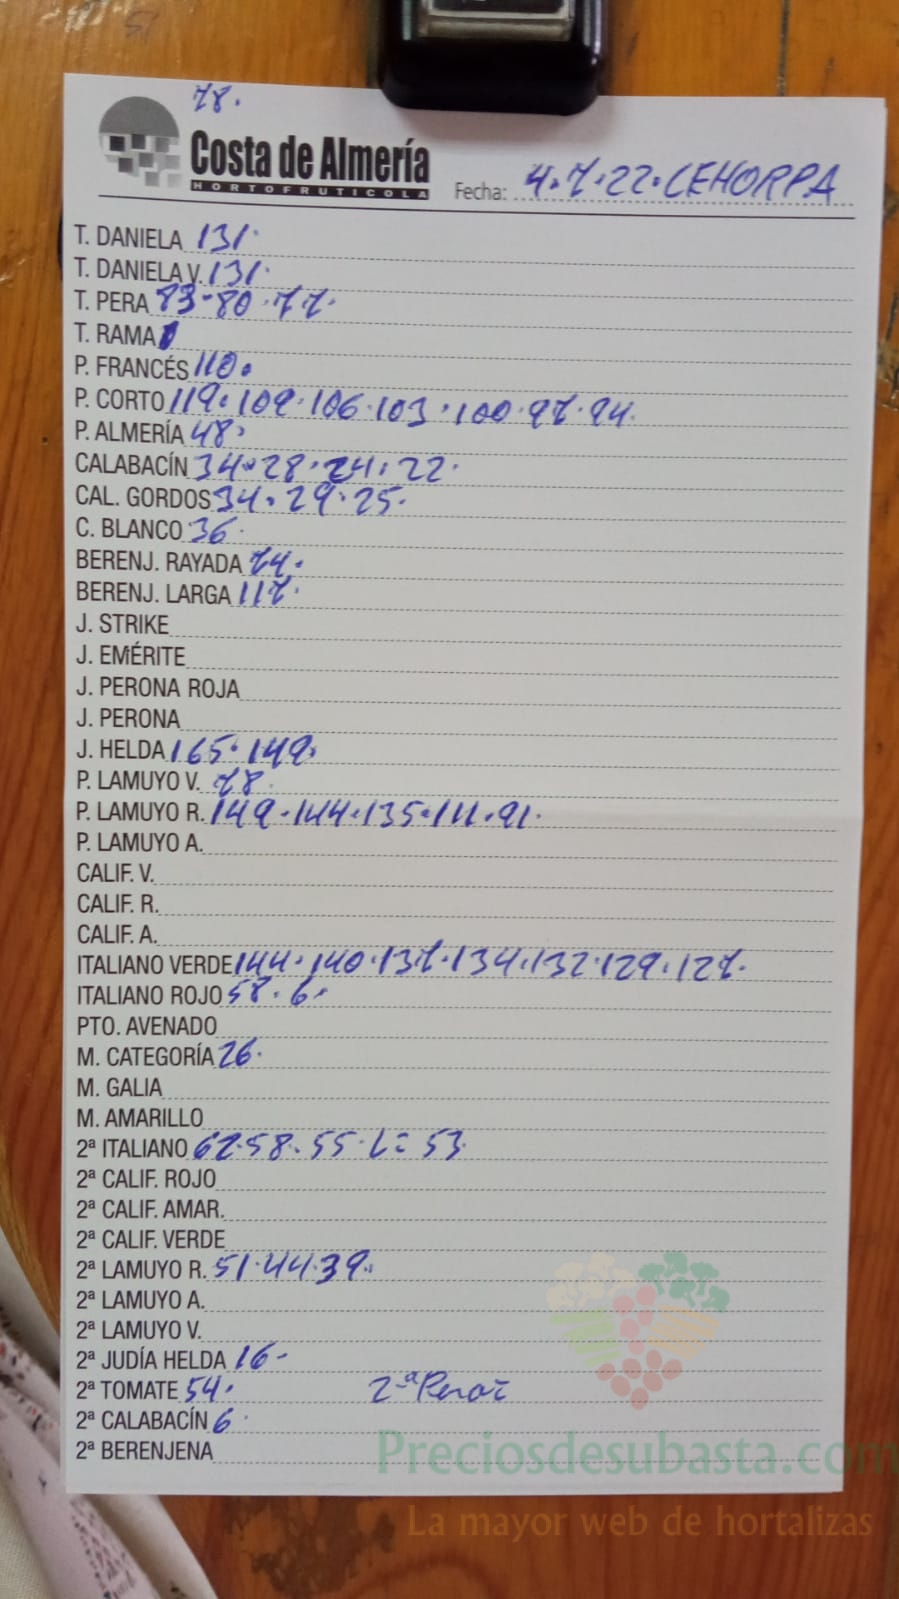 78.
Costa de Almería
HORTOFRUTICOLA
Fecha: 4.7.22. CEHORPA
T. DANIELA 131.
T. DANIELA V. 131.
T. PERA 83-80.77.
T. RAMA
P. FRANCÉS 110.
P. CORTO 119.109.106.103.100.97.94.
P. ALMERÍA 48.
CALABACÍN 34.28.24.22.
CAL. GORDOS 34.29.25.
C. BLANCO 36.
BERENJ. RAYADA 74.
BERENJ. LARGA 117.
J. STRIKE
J. EMÉRITE
J. PERONA ROJA
J. PERONA
J. HELDA 165.149.
P. LAMUYO V. 78.
P. LAMUYO R. 149.144.135.111.91.
P. LAMUYO A.
CALIF. V.
CALIF. R.
CALIF. A.
ITALIANO VERDE 144.140.137.134.132.129.127.
ITALIANO ROJO 58.6.
PTO. AVENADO
M. CATEGORÍA 26.
M. GALIA
M. AMARILLO
2ª ITALIANO 62.58.55.L=53.
2ª CALIF. ROJO
2ª CALIF. AMAR.
2ª CALIF. VERDE
2ª LAMUYO R. 51.44.39.
2ª LAMUYO A.
2ª LAMUYO V.
2ª JUDÍA HELDA 16-
2ª TOMATE 54. 2-ª Pera=
2ª CALABACÍN 6.
2ª BERENJENA
Preciosdesubasta.com
La mayor web de hortalizas